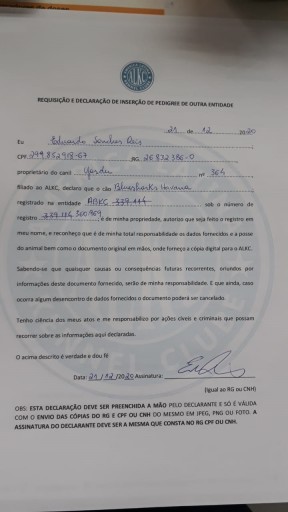 ALKC
REQUISIÇÃO E DECLARAÇÃO DE INSERÇÃO DE PEDIGREE DE OUTRA ENTIDADE
21 de 12 2020
Eu Eduardo Sanches Reis
CPF: 299.852.918-67 RG: 26872386-0
proprietário do canil nº 364
filiado ao ALKC, declara que o cão Bluesharks Havana
registrado na entidade ABKC 339.114 sob o número de
registro e de minha propriedade, autorizo que seja feito o registro em
meu nome, e reconheço que é de minha total responsabilidade os dados fornecidos e a posse
do animal bem como o documento original em mãos, onde forneço a cópia digital para o ALKC.
Sabendo-se que quaisquer causas ou consequências futuras recorrentes, oriundos por
informações deste documento fornecido, serão de minha responsabilidade. E que ainda, caso
ocorra algum desencontro de dados fornecidos o documento poderá ser cancelado.
Tenho ciência dos meus atos e me responsabilizo por ações cíveis e criminais que possam
recorrer sobre as informações aqui declaradas.
O acima descrito é verdade e dou fé
Data: 21/12/2020 Assinatura:
(Igual ao RG ou CNH)
OBS: ESTA DECLARAÇÃO DEVE SER PREENCHIDA A MÃO PELO DECLARANTE E SÓ É VÁLIDA
COM O ENVIO DAS CÓPIAS DO RG E CPF OU CNH DO MESMO EM JPEG, PNG OU FOTO. A
ASSINATURA DO DECLARANTE DEVE SER A MESMA QUE CONSTA NO RG CPF OU CNH.